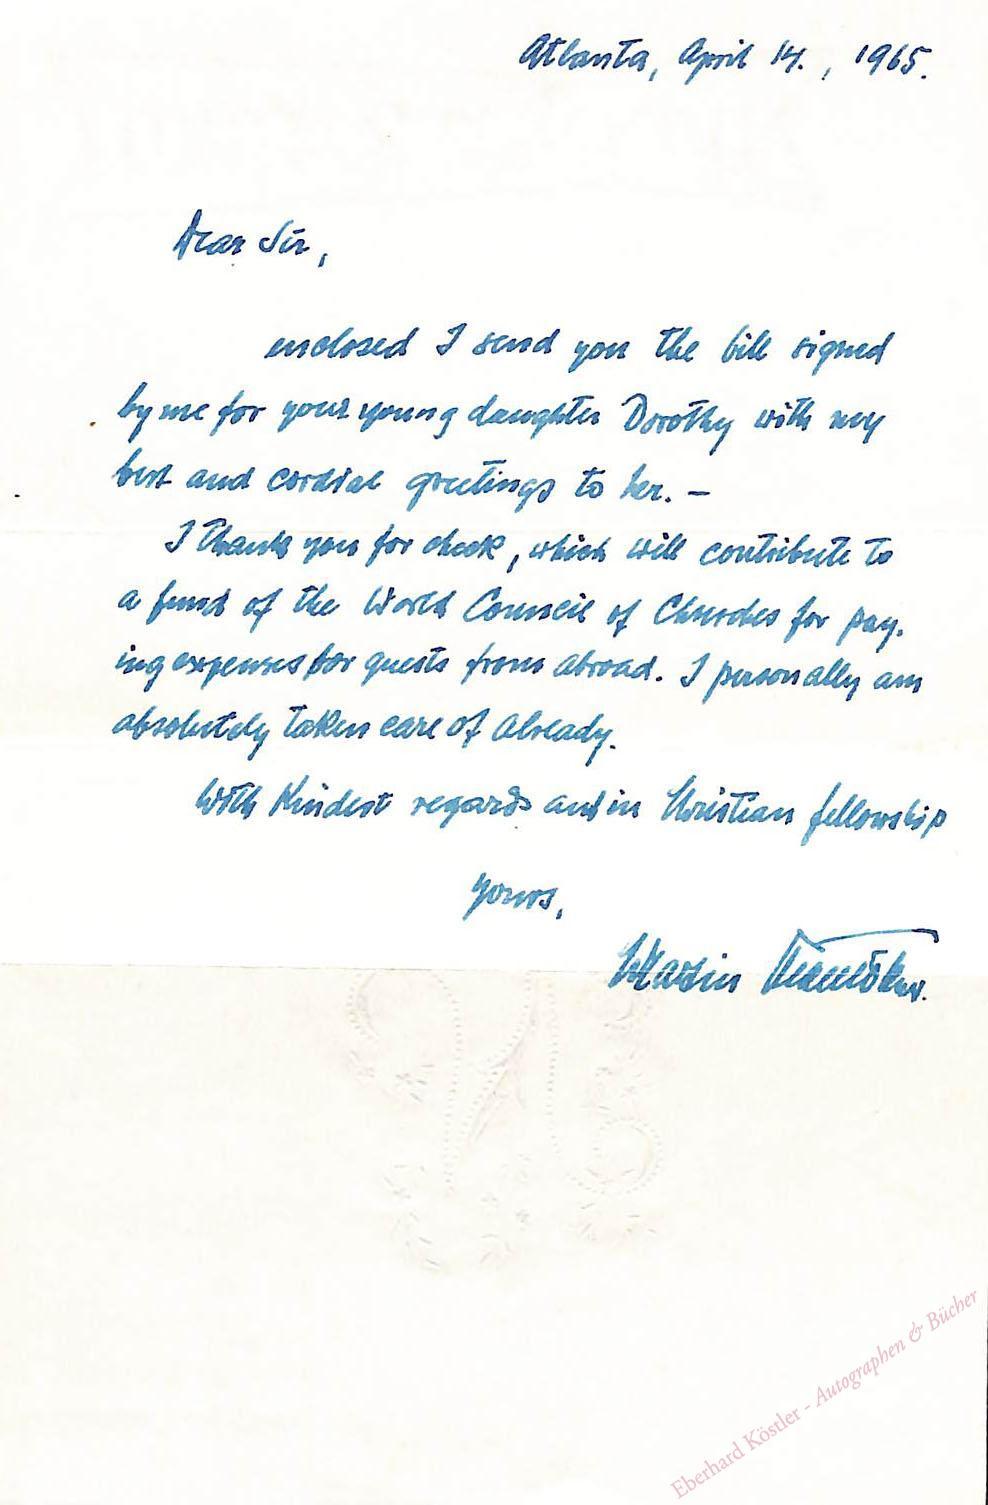 Atlanta, April 14., 1965.
Dear Sir,
enclosed I send you the bill signed
by me for your young daughter Dorothy with my
best and cordial greetings to her. –
I thank you for check, which will contribute to
a fund of the World Council of Churches for pay-
ing expenses for guests from abroad. I personally am
absolutely taken care of already.
With kindest regards and in Christian fellowship
yours,
Martin Niemöller.
Eberhard Köstler - Autographen & Bücher